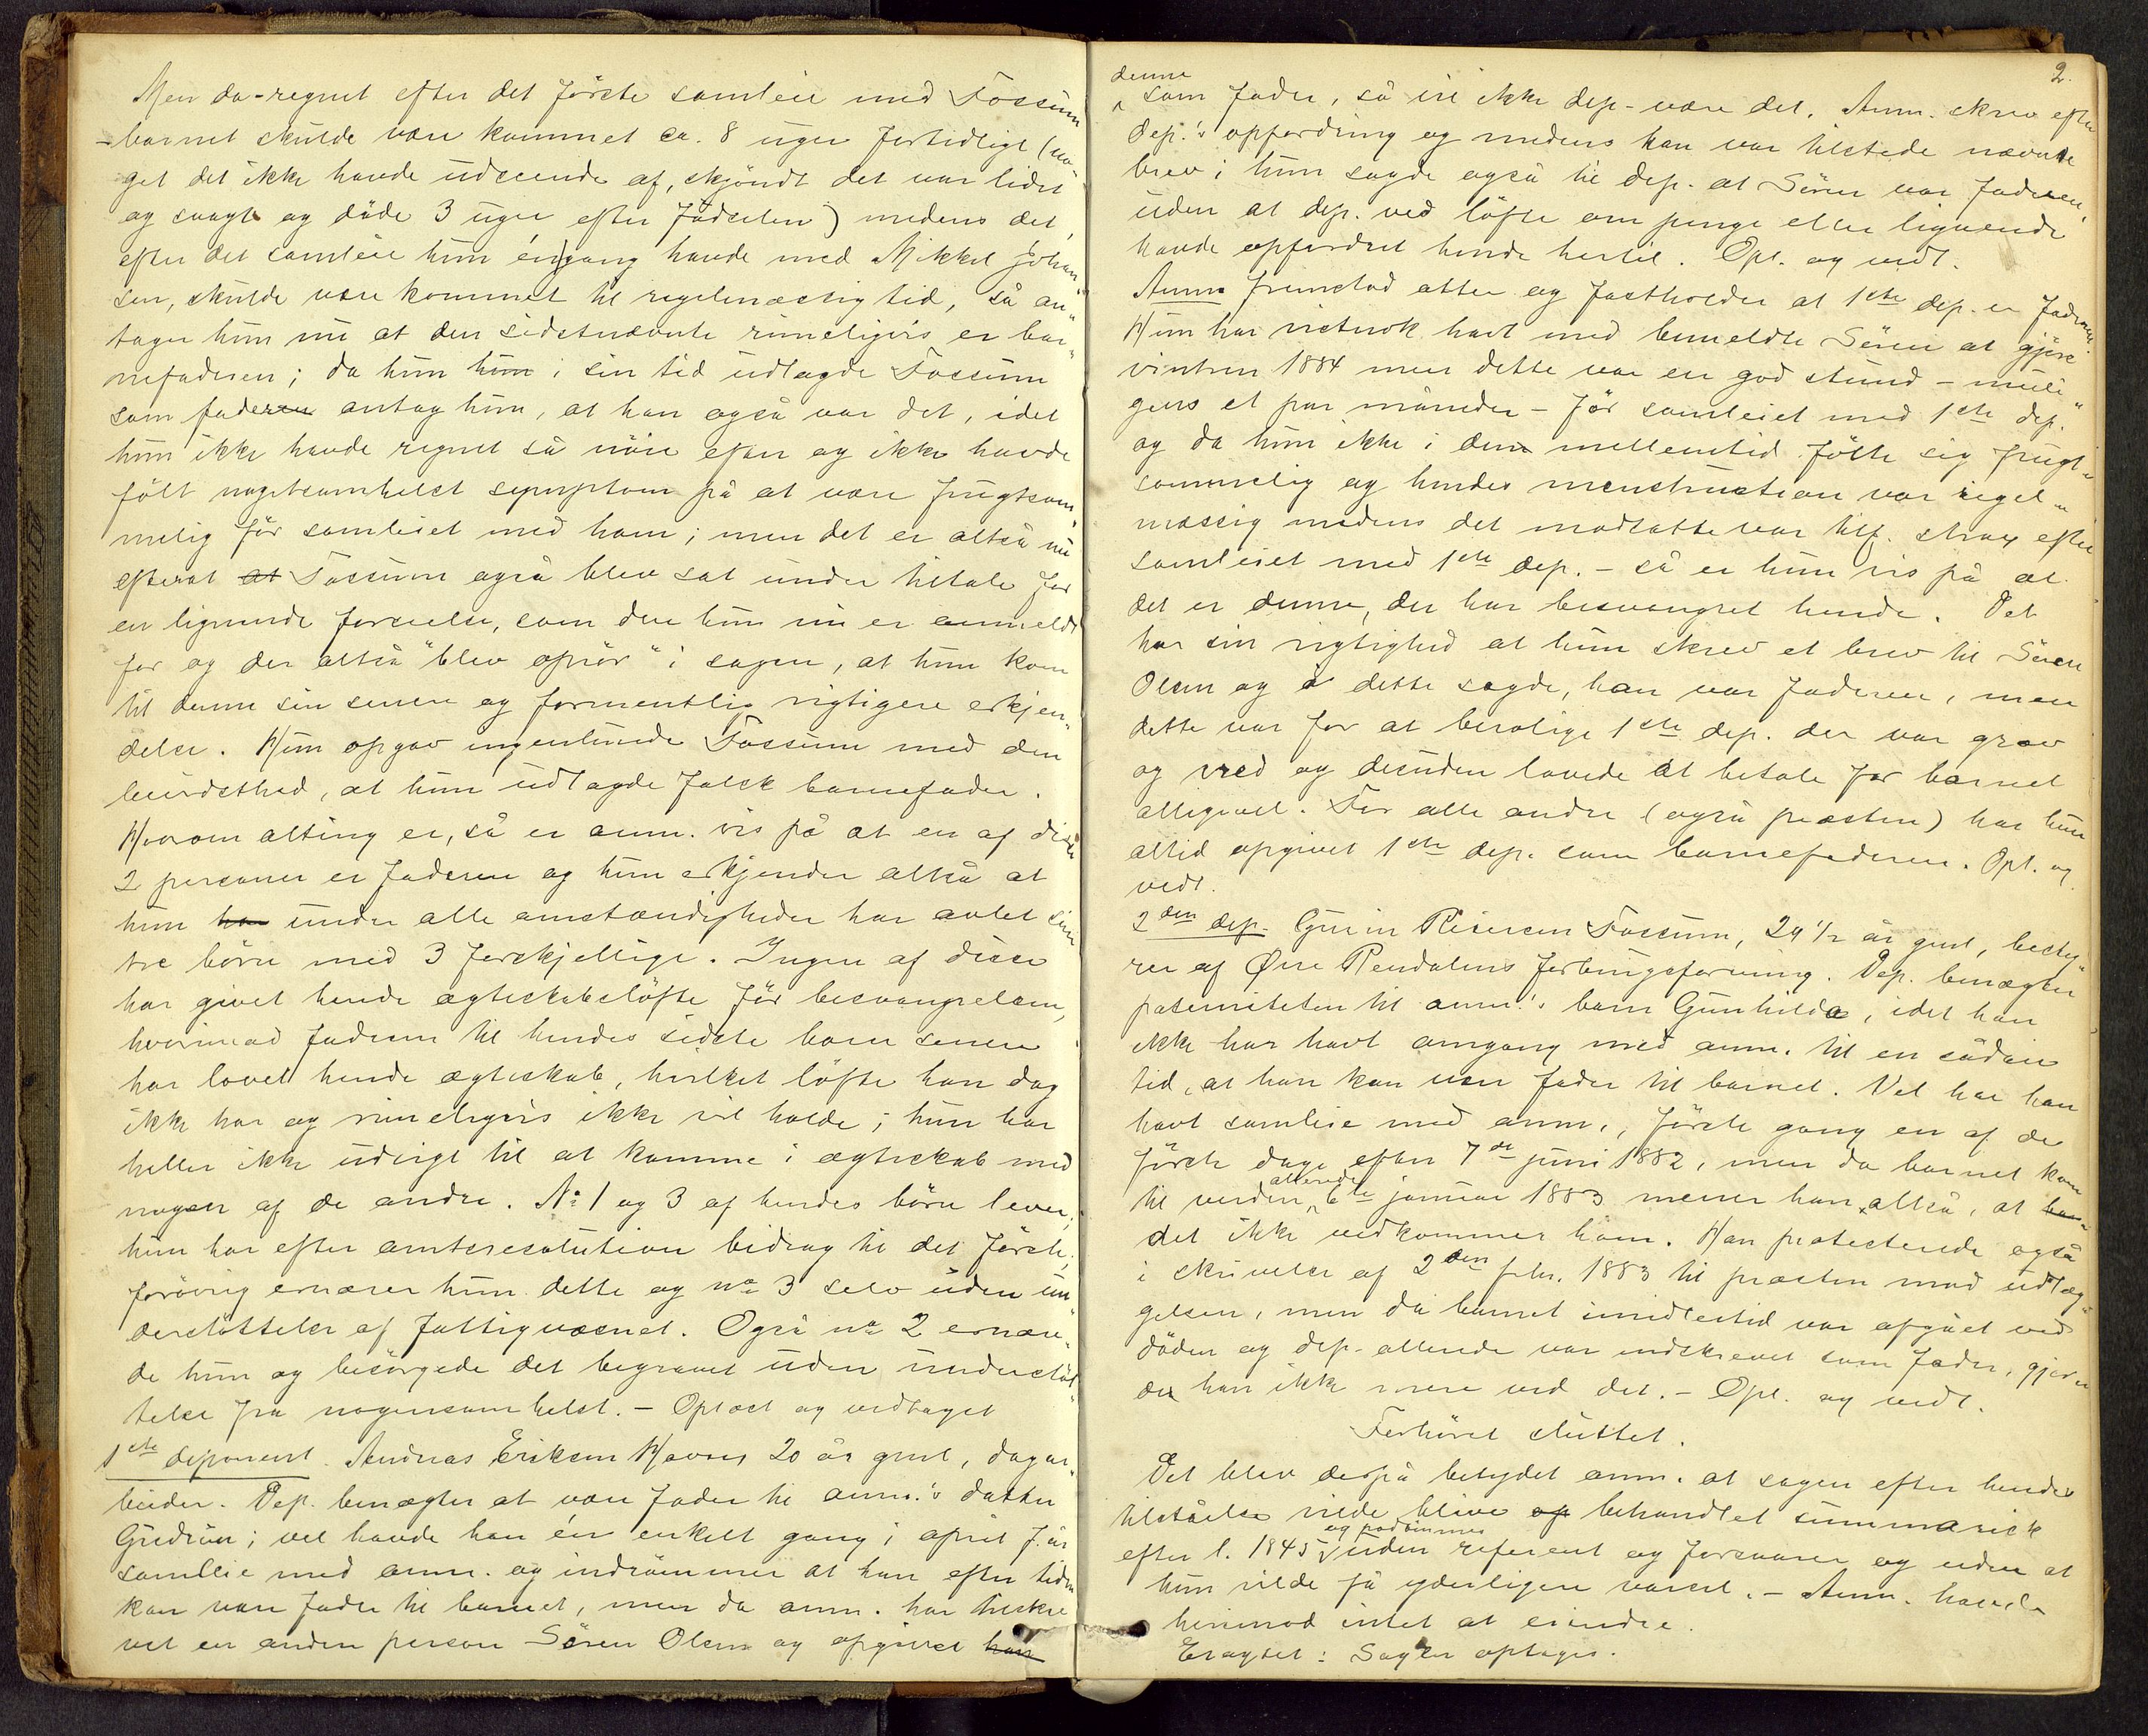 Men da - regnet efter det første samleie med Fossum
- barnet skulde være kommet ca. 8 uger fortidligt (no-
get det ikke havde udseende af, skjøndt det var lidet
og svagt og døde 3 uger efter fødselen) medens det,
efter det samleie hun én gang havde med Mikkel Johan-
sen, skulde være kommet til regelmæssig tid, så an-
tager hun nu at den sidstnævnte rimeligvis er bar-
nefaderen; da hun hun i sin tid udlagde Fossum
som fader antog hun, at han også var det, idet
hun ikke havde regnet så nöie efter og ikke havde
fölt nogetsomhelst symptom på at være frugtsom-
melig för samleiet med ham; men det er altså nu
efterat at Fossum også blev sat under tiltale for
en lignende forseelse, som den hun nu er anmeldt
for og der altså "blev oprör" i sagen, at hun kom
til denne sin senere og formentlig rigtigere erkjen-
delse. Hun opgav ingenlunde Fossum med den
bevidsthed, at hun udlagde falsk barnefader.
Hvorom alting er, så er anm. vis på at en af disse
2 personer er faderen og hun erkjender altså at
hun har under alle omstændigheder har avlet sine
tre börn med 3 forskjellige. Ingen af disse
har givet hende ægteskabslöfte för besvangrelsen,
hvorimod faderen til hendes sidste barn senere
har lovet hende ægteskab, hvilket löfte han dog
ikke har og rimeligvis ikke vil holde; hun har
heller ikke udsigt til at komme i ægteskab med
nogen af de andre. No 1 og 3 af hendes börn lever;
hun har efter amtsresolution bidrag til det förste;
forövrig ernærer hun dette og no 3 selv uden un-
derstöttelse af fattigvæsenet. Også no 2 ernære-
de hun og besörgede det begravet uden understöt-
telse fra nogensomhelst. - Oplæst og vedtaget
1ste deponent. Andreas Eriksen Havnes 20 år gml, dagar-
beider. Dep. benægter at være fader til anm.'s datter
Gudrun; vel havde han én enkelt gang i april f. år
samleie med anm. og indrömmer at han efter tiden
kan være fader til barnet, men da anm. har tilskre-
vet en anden person Sören Olsen og opgivet han
2.
denne
som fader, så vil ikke dep. være det. Anm. skrev efter
dep.'s opfordring og medens han var tilstede nævnte
brev; hun sagde også til dep. at Sören var faderen,
uden at dep. ved löfte om penge eller lignende
havde opfordret hende hertil. Opl. og vedt.
Anm. fremstod atter og fastholder at 1ste dep. er faderen.
Hun har vistnok havt med bemeldte Sören at gjöre
vintren 1884 men dette var en god stund - muli-
gens et par måneder - för samleiet med 1ste dep.
og da hun ikke i den mellemtid fölte sig frugt-
sommelig og hendes menstruation var regel-
mæssig medens det modsatte var tilf. strax efter
samleiet med 1ste dep. - så er hun vis på at
det er denne, der har besvangret hende. Det
har sin rigtighed at hun skrev et brev til Sören
Olsen og i dette sagde, han var faderen, men
dette var for at berolige 1ste dep. der var grov
og vred og desuden lovede at betale for barnet
alligevel. For alle andre (også præsten) har hun
altid opgivet 1ste dep. som barnefaderen. Opl. og
vedt.
2den dep. Fossum, 24 1/2 år gml, besty-
rer af Övre Rendalens forbrugsforening. Dep. benægter
paterniteten til anm.'s barn Gunhilda, idet han
ikke har havt omgang med anm. til en sådan
tid, at han kan være fader til barnet. Vel har han
havt samleie med anm., förste gang en af de
förste dage efter 7de juni 1882, men da barnet kom
til verden allerede 6te januar 1883 mener han altså, at bar-
det ikke vedkommer ham. Han protesterede også
i skrivelse af 2den febr. 1883 til præsten mod udlæg-
gelsen, men da barnet imidlertid var afgået ved
döden og dep. allerede var indskrevet som fader, gjorde
der han ikke mere ved det. - Opl. og vedt.
Forhöret sluttet.
Det blev derpå betydet anm. at sagen efter hendes
tilståelse vilde blive op behandlet summarisk
efter l. 1845 og pådömmes uden referent og forsvarer og uden at
hun vilde få yderligere varsel. - Anm. havde
herimod intet at erindre.
Eragtet: Sagen optages.